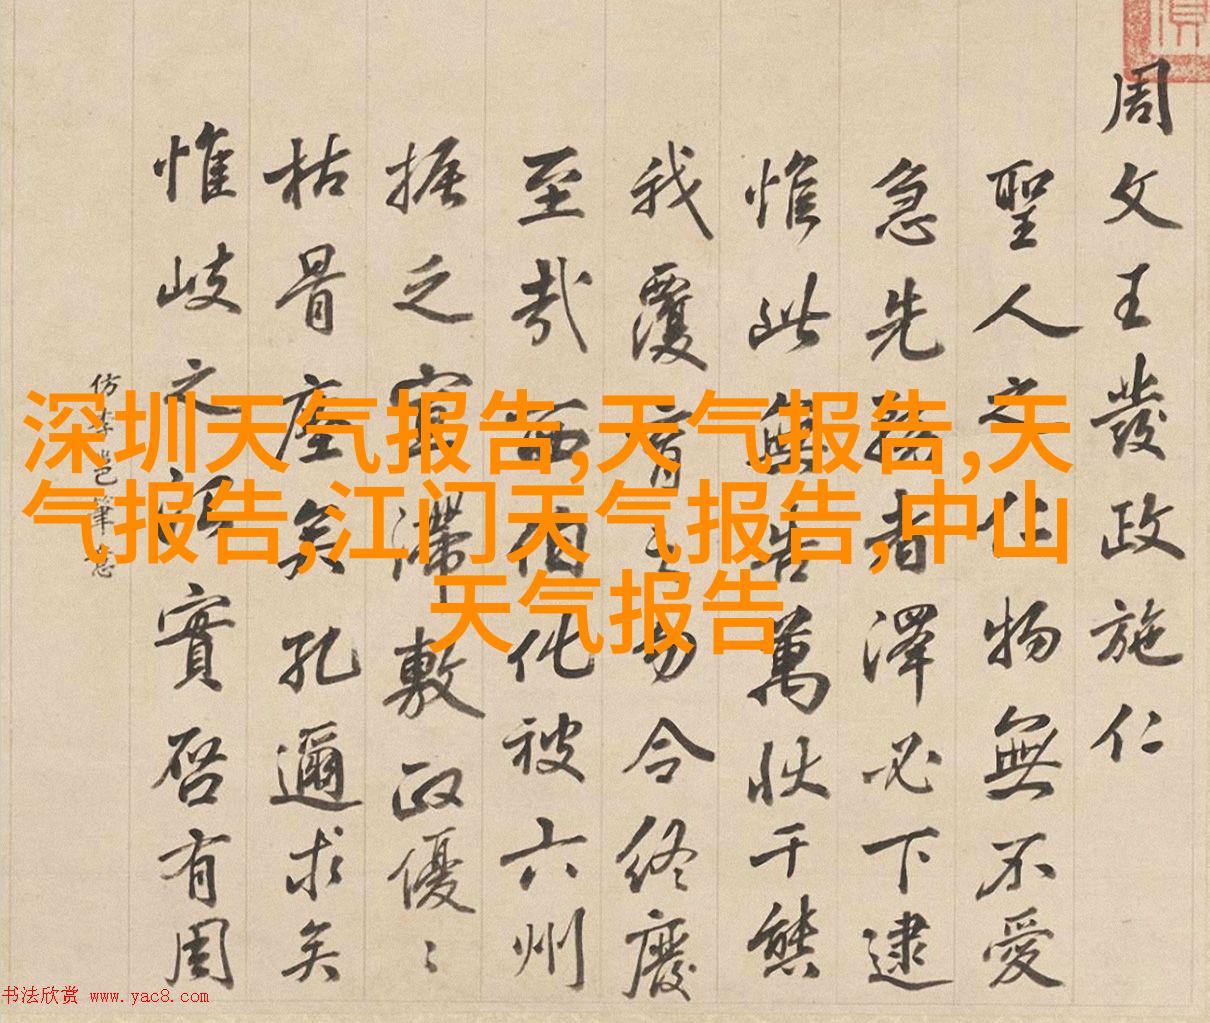 周文王發政施仁
聖人之物無不愛
急先者澤必下逮
惟此無告萬狀千態
我覆育之勿令終廢
至哉西伯化被六州
振之滯敷政優〻
枯骨矣孔邇求矣
惟岐之實啓有周
仿筆意
深圳天气报告,天气报告,天
气报告,江门天气报告,中山
天气报告
书法欣赏 www.yac8.com